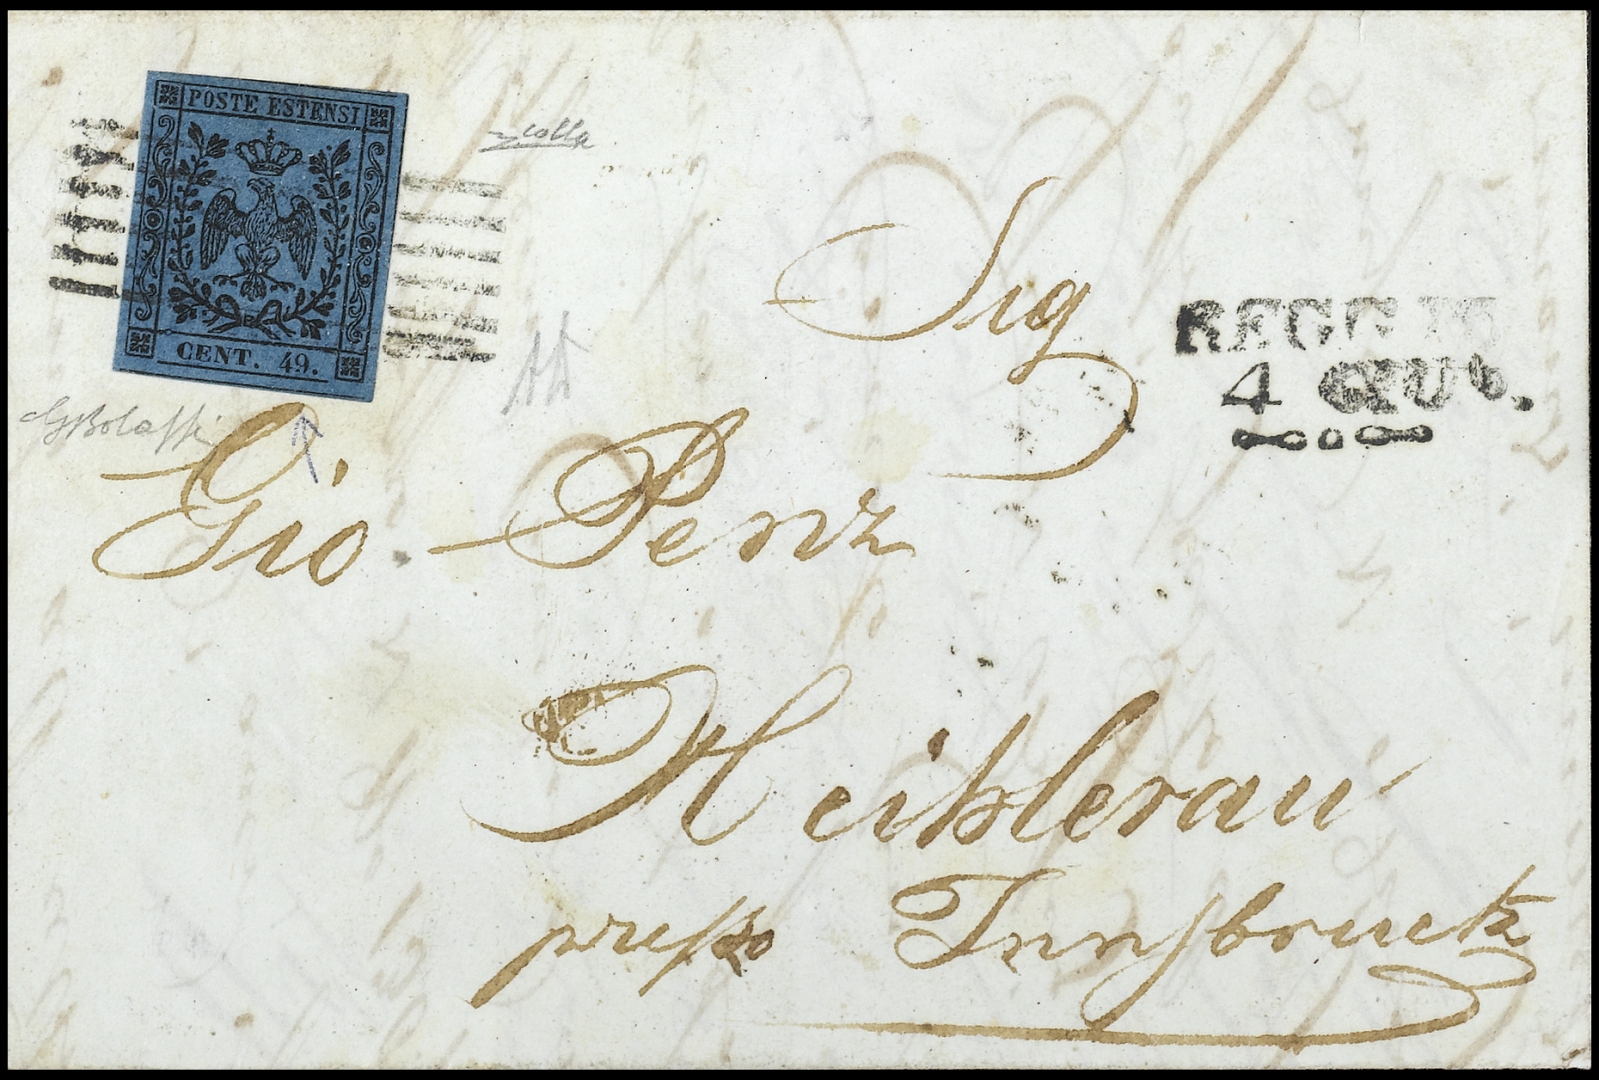 POSTE ESTENSI
CENT. 49.
colla
GBolaffi
REGGIO
4 GIUo.
Sig
Gio Penz
Heißlerau
presso Innsbruck